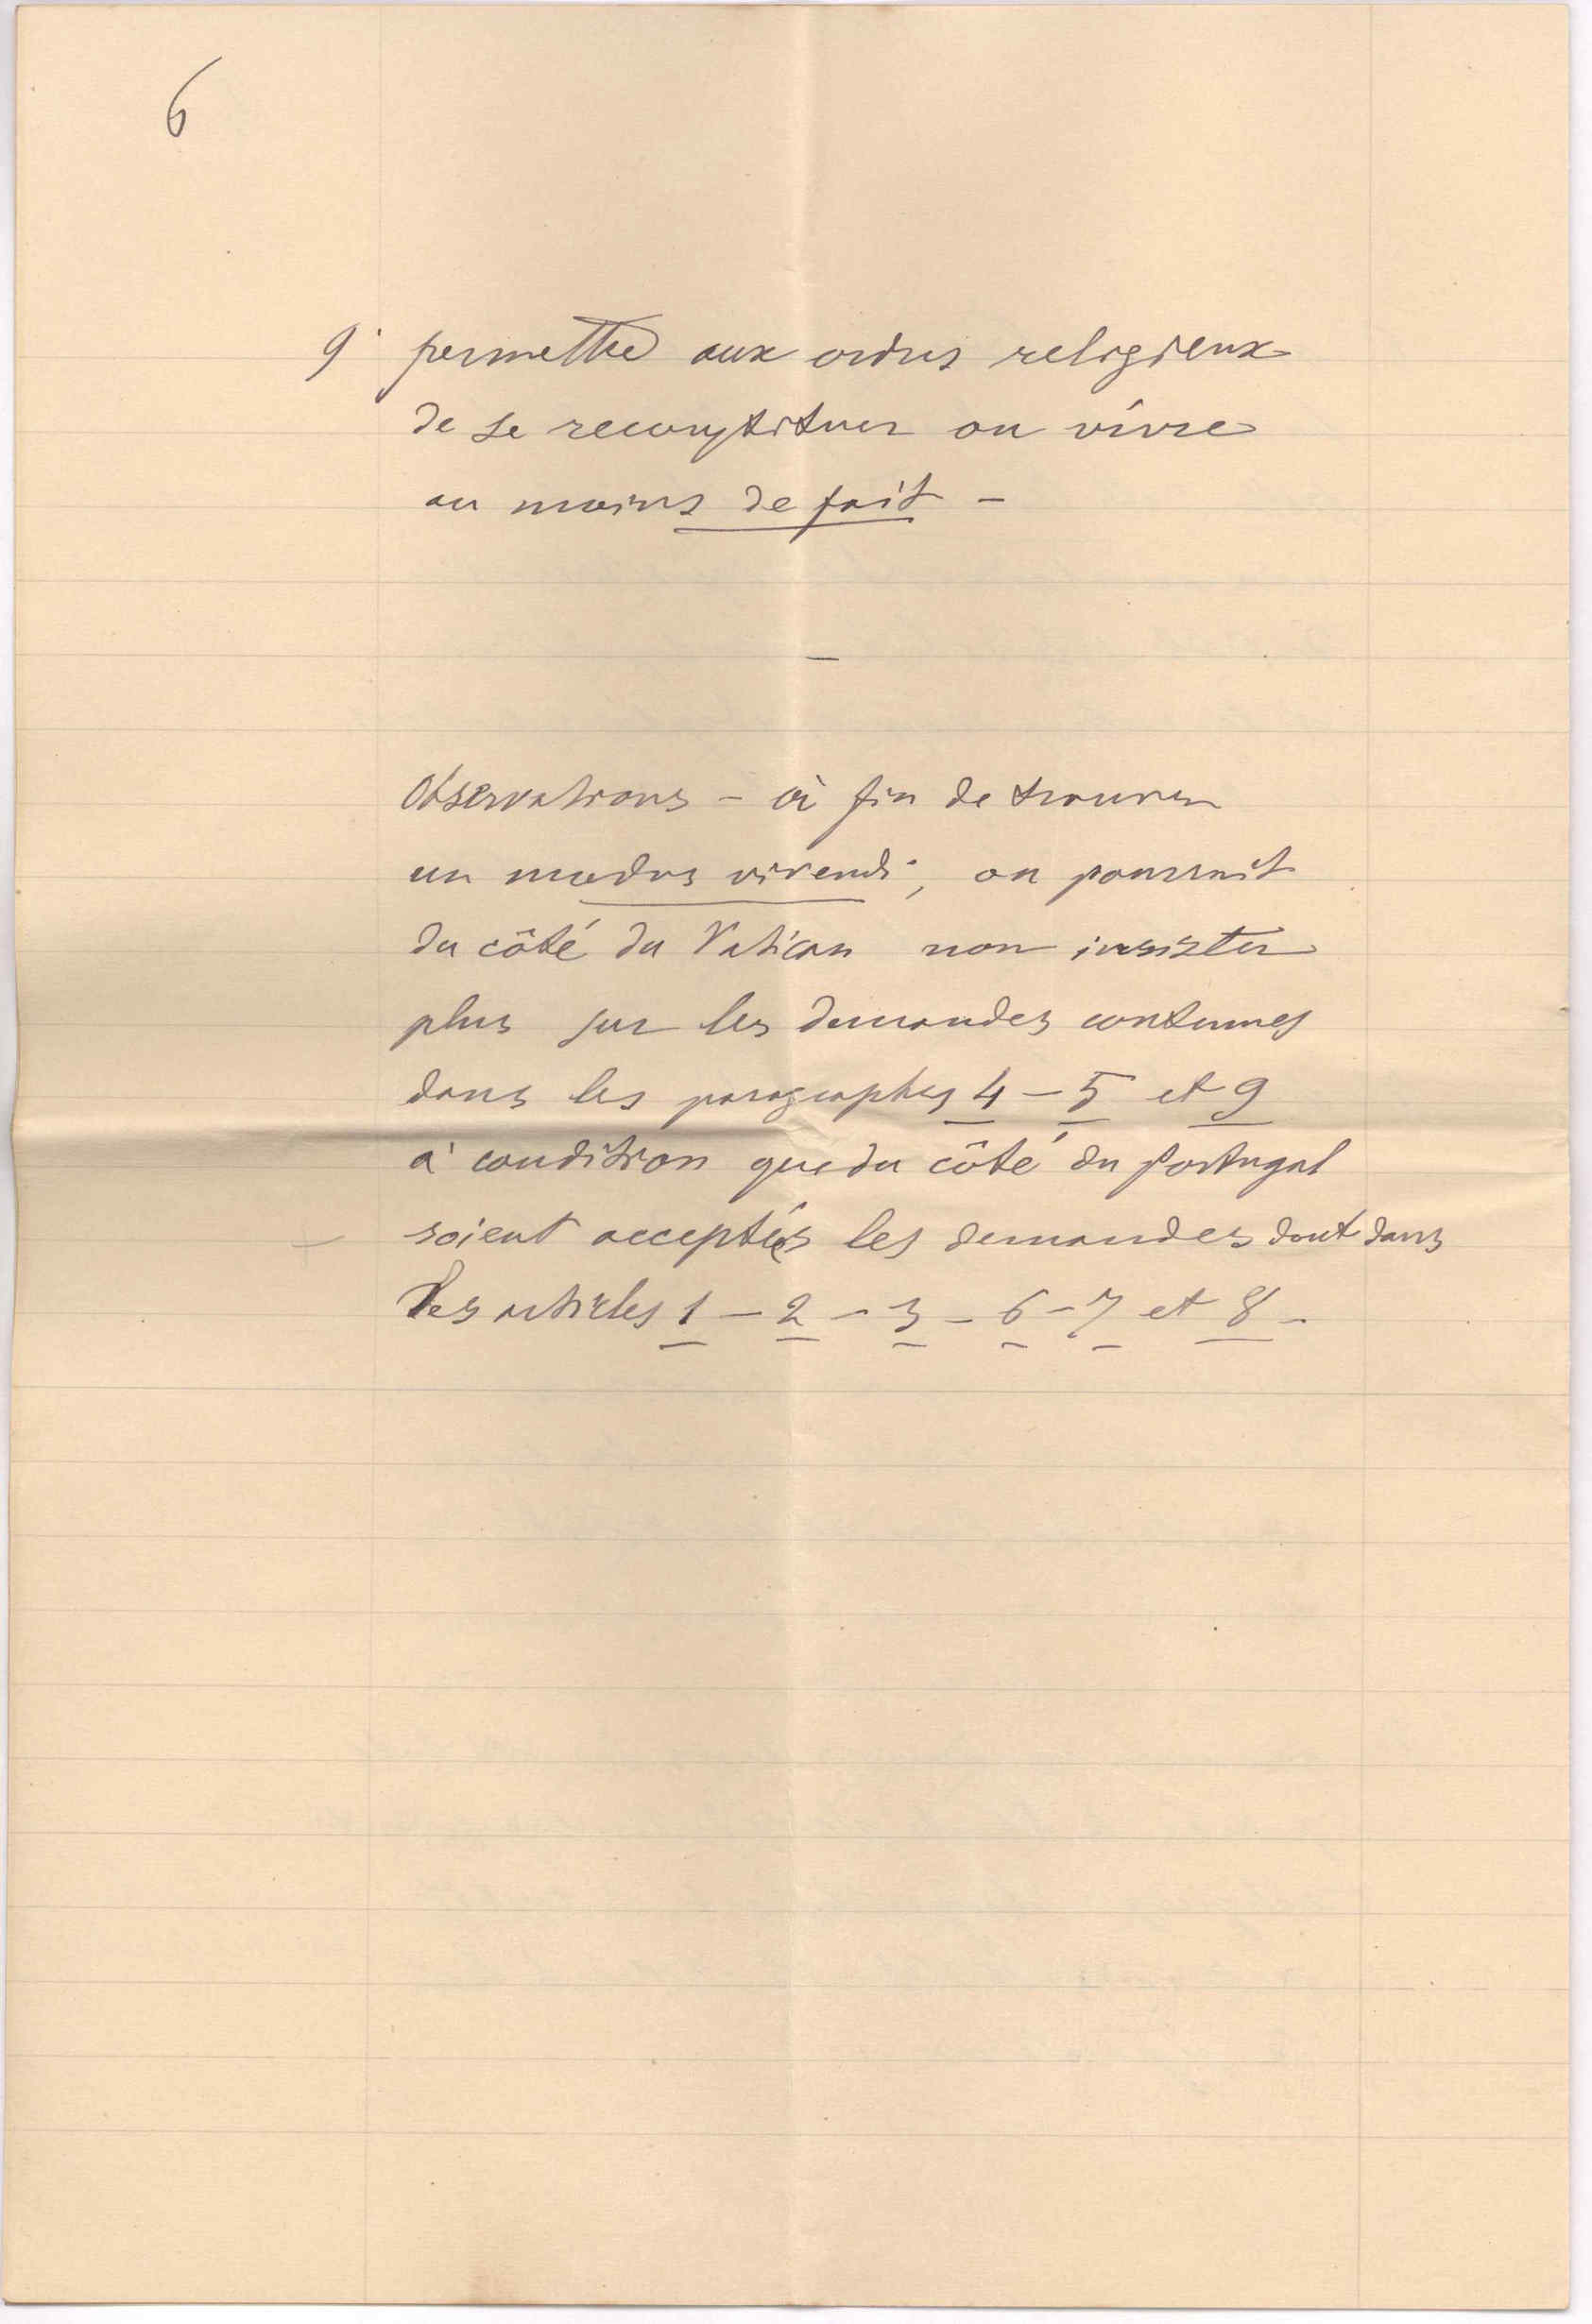 6
9° permettre aux ordres religieux
de se reconstituer ou vivre
au moins de fait –
–
Observations – à fin de trouver
un modus vivendi, on pourrait
du côté du Vatican non insister
plus sur les demandes contenues
dans les paragraphes 4 – 5 et 9
à condition que du côté du Portugal
soient acceptées les demandes dont dans
les articles 1 – 2 – 3 – 6 – 7 et 8 –